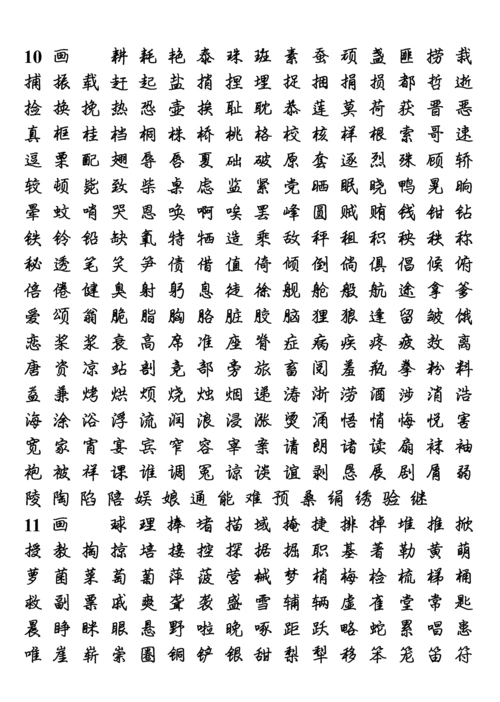 10 画 耕 耗 艳 泰 珠 班 素 蚕 顽 盏 匪 捞 栽
捕 振 载 赶 起 盐 捎 捏 埋 捉 捆 捐 损 都 哲 逝
捡 换 挽 热 恐 壶 挨 耻 耽 恭 莲 莫 荷 获 晋 恶
真 框 桂 档 桐 株 桥 桃 格 校 核 样 根 索 哥 速
逗 栗 配 翅 辱 唇 夏 础 破 原 套 逐 烈 殊 顾 轿
较 顿 毙 致 柴 桌 虑 监 紧 党 晒 眠 晓 鸭 晃 晌
晕 蚊 哨 哭 恩 唤 啊 唉 罢 峰 圆 贼 贿 钱 钳 钻
铁 铃 铅 缺 氧 特 牺 造 乘 敌 秤 租 积 秧 秩 称
秘 透 笔 笑 笋 债 借 值 倚 倾 倒 倘 俱 倡 候 俯
倍 倦 健 臭 射 躬 息 徒 徐 舰 舱 般 航 途 拿 爹
爱 颂 翁 脆 脂 胸 胳 脏 胶 脑 狸 狼 逢 留 皱 饿
恋 桨 浆 衰 高 席 准 座 脊 症 病 疾 疼 疲 效 离
唐 资 凉 站 剖 竞 部 旁 旅 畜 阅 羞 瓶 拳 粉 料
益 兼 烤 烘 烦 烧 烛 烟 递 涛 浙 涝 酒 涉 消 浩
海 涂 浴 浮 流 润 浪 浸 涨 烫 涌 悟 悄 悔 悦 害
宽 家 宵 宴 宾 窄 容 宰 案 请 朗 诸 读 扇 袜 袖
袍 被 祥 课 谁 调 冤 谅 谈 谊 剥 恳 展 剧 屑 弱
陵 陶 陷 陪 娱 娘 通 能 难 预 桑 绢 绣 验 继
11 画 球 理 捧 堵 描 域 掩 捷 排 掉 堆 推 掀
授 教 掏 掠 培 接 控 探 据 掘 职 基 著 勒 黄 萌
萝 菌 菜 萄 菊 萍 菠 营 械 梦 梢 梅 检 梳 梯 桶
救 副 票 戚 爽 聋 袭 盛 雪 辅 辆 虚 雀 堂 常 匙
晨 睁 眯 眼 悬 野 啦 晚 啄 距 跃 略 蛇 累 唱 患
唯 崖 崭 崇 圈 铜 铲 银 甜 梨 犁 移 笨 笼 笛 符